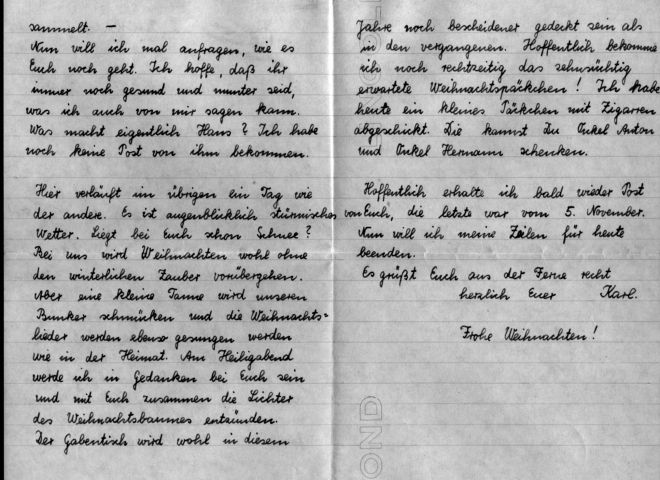 sammelt. —
Nun will ich mal anfragen, wie es
Euch noch geht. Ich hoffe, daß ihr
immer noch gesund und munter seid,
was ich auch von mir sagen kann.
Was macht eigentlich Hans? Ich habe
noch keine Post von ihm bekommen.
Hier verläuft im übrigen ein Tag wie
der andere. Es ist augenblicklich stürmisches
Wetter. Liegt bei Euch schon Schnee?
Bei uns wird Weihnachten wohl ohne
den winterlichen Zauber vorübergehen.
Aber eine kleine Tanne wird unseren
Bunker schmücken und die Weihnachts=
lieder werden ebenso gesungen werden
wie in der Heimat. Am Heiligabend
werde ich in Gedanken bei Euch sein
und mit Euch zusammen die Lichter
des Weihnachtsbaumes entzünden.
Der Gabentisch wird wohl in diesem
Jahre noch bescheidener gedeckt sein als
in den vergangenen. Hoffentlich bekomme
ich noch rechtzeitig das sehnsüchtig
erwartete Weihnachtspäckchen! Ich habe
heute ein kleines Päckchen mit Zigarren
abgeschickt. Die kannst Du Onkel Anton
und Onkel Hermann schenken.
Hoffentlich erhalte ich bald wieder Post
von Euch, die letzte war vom 5. November.
Nun will ich meine Zeilen für heute
beenden.
Es grüßt Euch aus der Ferne recht
herzlich Euer Karl.
Frohe Weihnachten!
OND